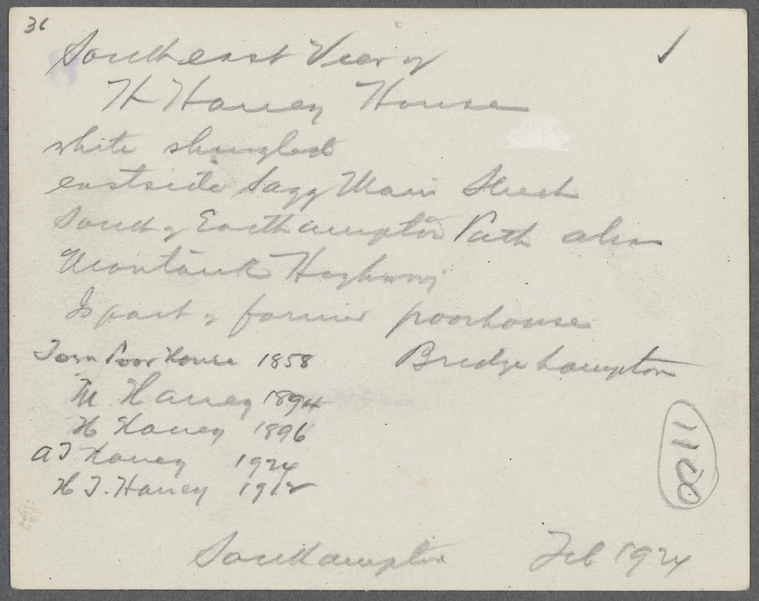 36
Southeast View of
H Haney House
white shingled
eastside Sagg Main Street
South of Easthampton Path also
Montauk Highway
Is part of former poorhouse
Town Poor house 1858 Bridgehampton
M. Haney 1894
H Haney 1896
A T Haney 1924
H T. Haney 1912
1100
Southampton Feb 1924